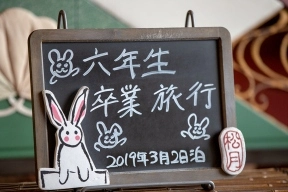 六年生
卒業旅行
2019年3月2日泊
松月